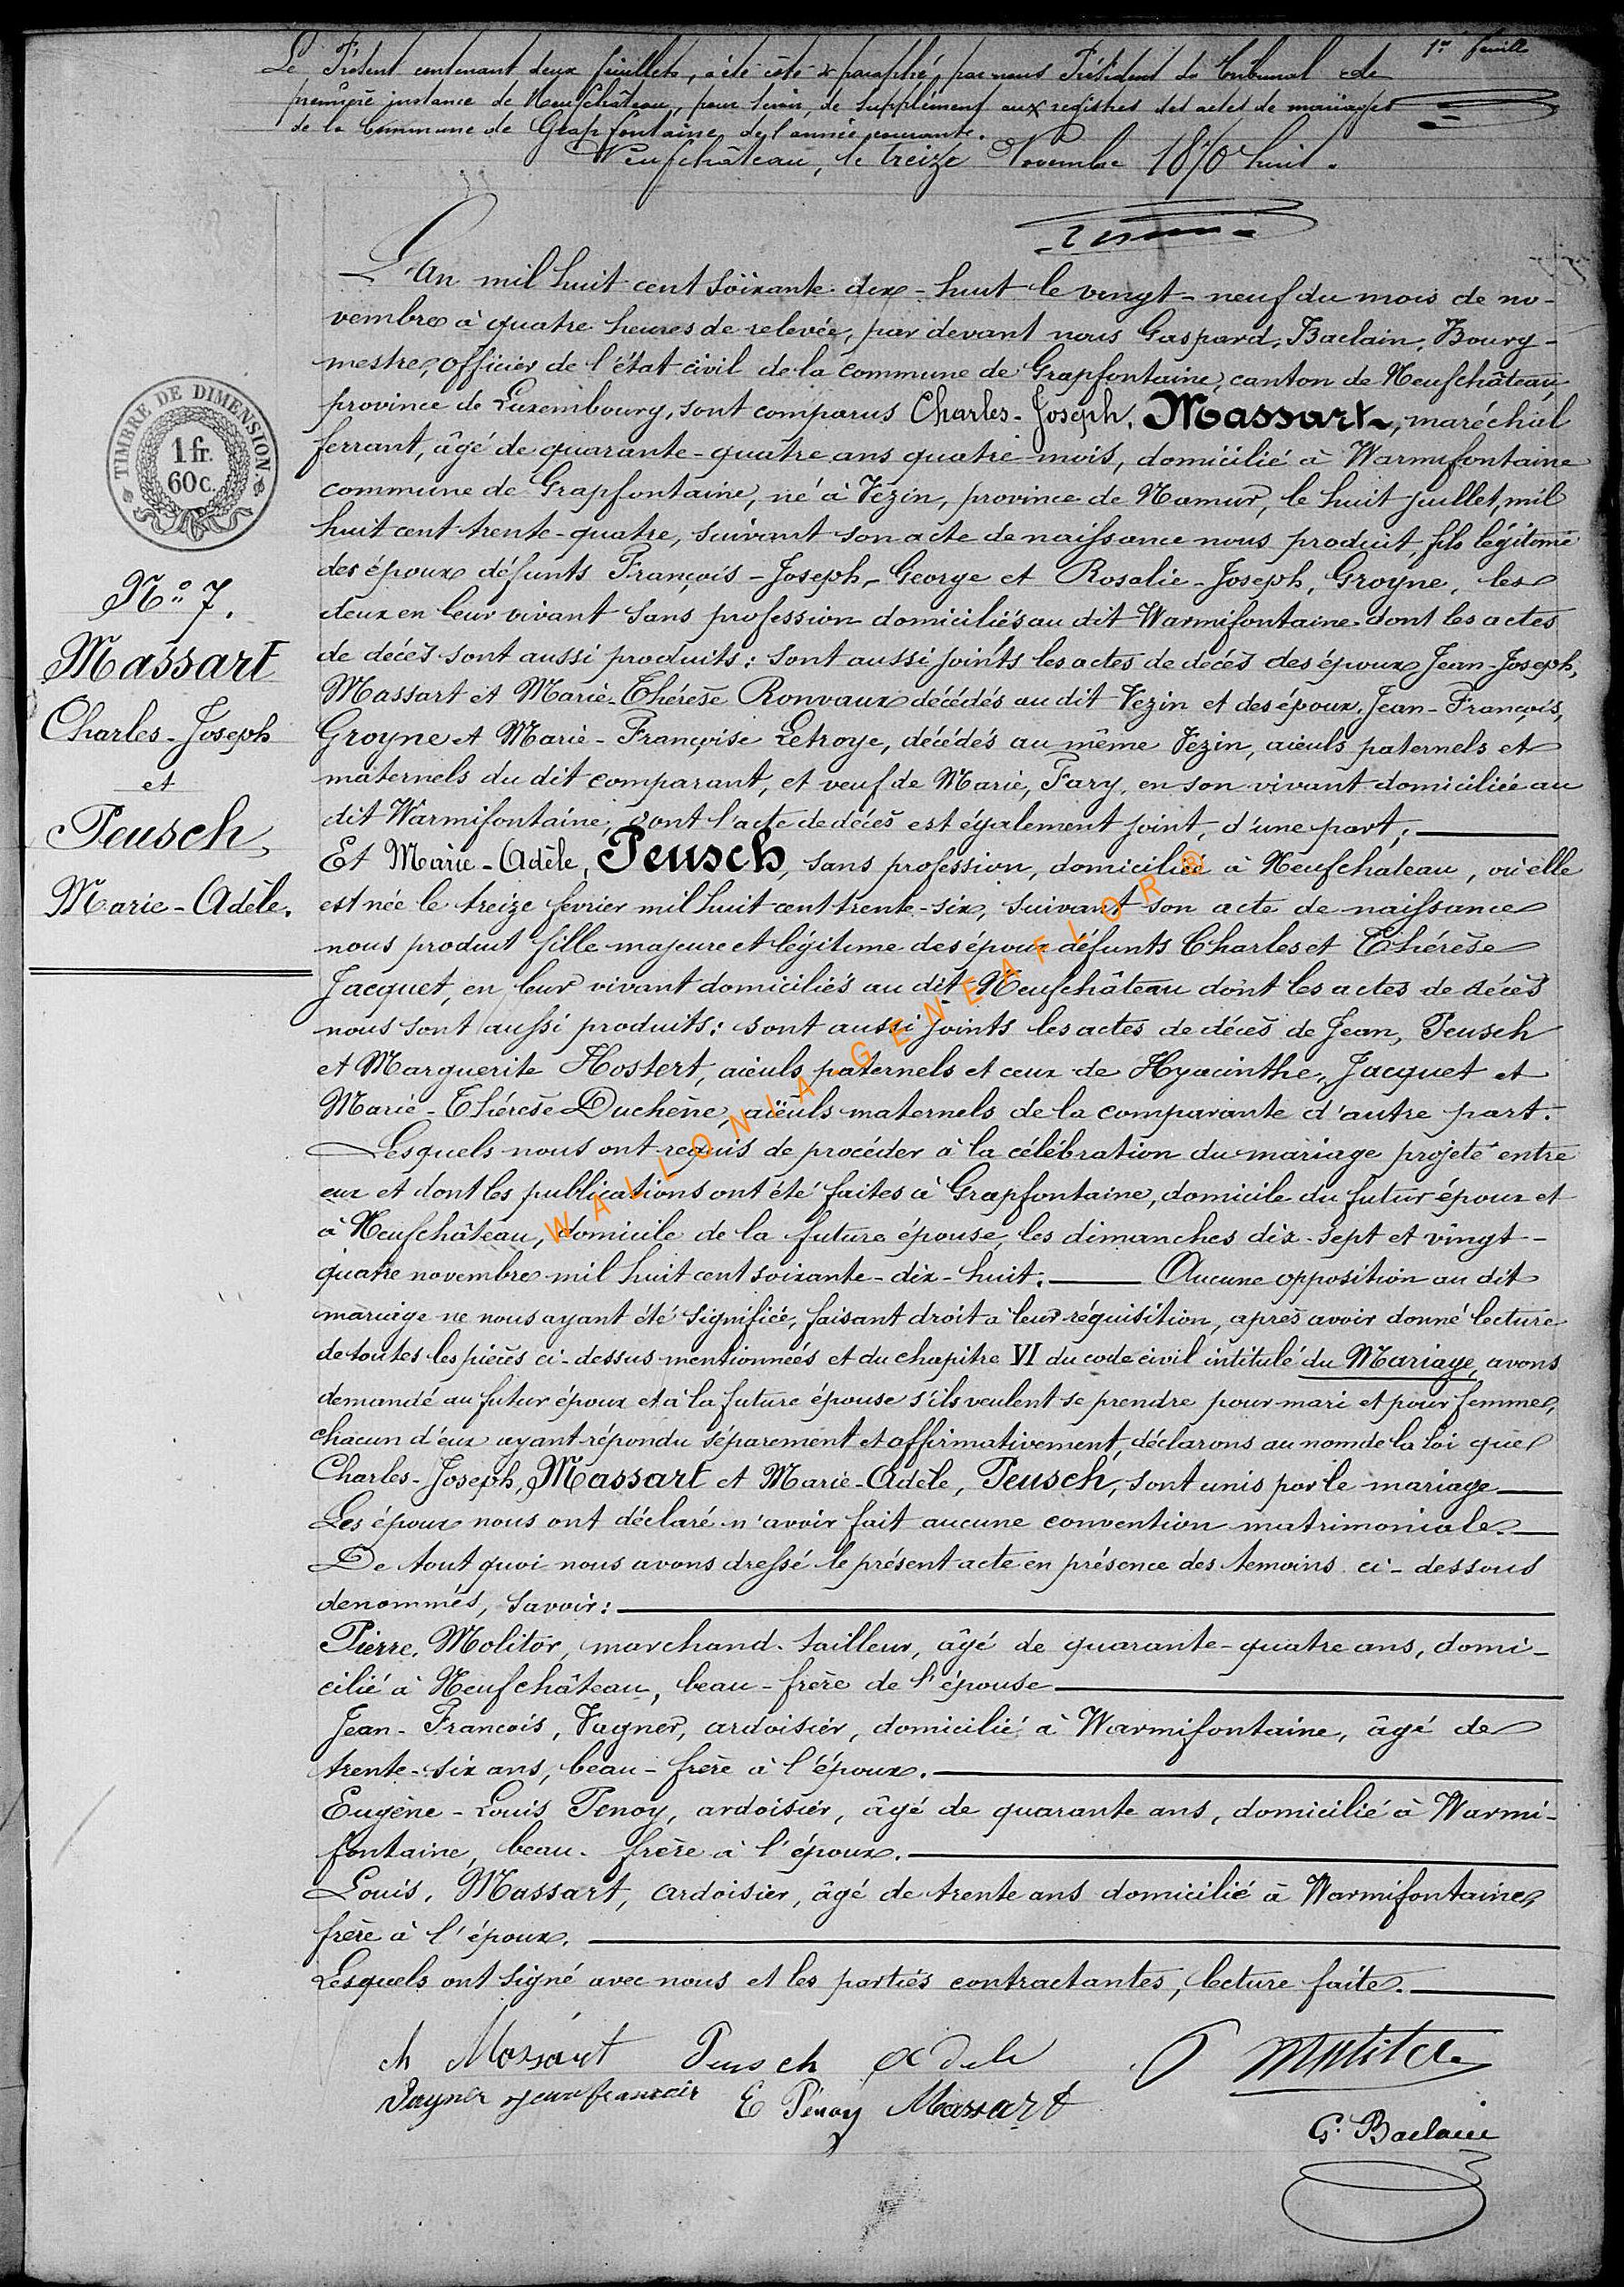 1er feuille
Le Présent contenant deux feuillets, a été côté & paraphé, par nous Président du Tribunal de
première instance de Neufchâteau, pour servir de supplément aux registres des actes de mariages
de la Commune de Grapfontaine, de l'année courante.
Neufchâteau, le treize Novembre 1870 huit.
L'an mil huit cent soixante-dix-huit le vingt-neuf du mois de no-
vembre à quatre heures de relevée, par devant nous Gaspard, Baclain, Bourg-
mestre, officier de l'état civil de la commune de Grapfontaine, canton de Neufchâteau,
province de Luxembourg, sont comparus Charles-Joseph, Massart, maréchal
ferrant, âgé de quarante-quatre ans quatre mois, domicilié à Warmifontaine
commune de Grapfontaine, né à Vezin, province de Namur, le huit juillet, mil
huit cent trente-quatre, suivant son acte de naissance nous produit, fils légitime
des époux défunts François-Joseph-George et Rosalie-Joseph, Groyne, les
deux en leur vivant sans profession domiciliés au dit Warmifontaine dont les actes
de décès sont aussi produits: sont aussi joints les actes de décès des époux Jean-Joseph,
Massart et Marie-Thérèse Ronvaux décédés au dit Vezin et des époux, Jean-François,
Groyne et Marie-Françoise Letroye, décédés au même Vezin, aïeuls paternels et
maternels du dit comparant, et veuf de Marie, Fary, en son vivant domiciliée au
dit Warmifontaine, dont l'acte de décès est également joint, d'une part;
Et Marie-Adèle, Peusch, sans profession, domiciliée à Neufchateau, où elle
est née le treize fevrier mil huit cent trente-six, suivant son acte de naissance
nous produit fille majeure et légitime des époux défunts Charles et Thérèse
Jacquet, en leur vivant domiciliés au dit Neufchâteau dont les actes de décès
nous sont aussi produits: sont aussi joints les actes de décès de Jean, Peusch
et Marguerite Hostert, aïeuls paternels et ceux de Hyacinthe, Jacquet et
Marie-Thérèse Duchène, aïeuls maternels de la comparante d'autre part.
Lesquels nous ont requis de procéder à la célébration du mariage projeté entre
eux et dont les publications ont été faites à Grapfontaine, domicile du futur époux et
à Neufchâteau, domicile de la future épouse, les dimanches dix-sept et vingt-
quatre novembre mil huit cent soixante-dix-huit. Aucune opposition au dit
mariage ne nous ayant été signifiée, faisant droit à leur réquisition, après avoir donné lecture
de toutes les pièces ci-dessus mentionnées et du chapitre VI du code civil intitulé du Mariage, avons
demandé au futur époux et à la future épouse s'ils veulent se prendre pour mari et pour femme,
chacun d'eux ayant répondu séparement et affirmativement, déclarons au nom de la loi que
Charles-Joseph, Massart et Marie-Adèle, Peusch, sont unis par le mariage
Les époux nous ont déclaré n'avoir fait aucune convention matrimoniale.
De tout quoi nous avons dressé le présent acte en présence des temoins ci-dessous
denommés, savoir:
Pierre, Molitor, marchand-tailleur, âgé de quarante-quatre ans, domi-
cilié à Neufchâteau, beau-frère de l'épouse
Jean-François, Vagner, ardoisier, domicilié à Warmifontaine, âgé de
trente-six ans, beau-frère à l'époux.
Eugène-Louis Penoy, ardoisier, âgé de quarante ans, domicilié à Warmi-
fontaine, beau-frère à l'époux.
Louis, Massart, ardoisier, âgé de trente ans domicilié à Warmifontaine,
frère à l'époux.
Lesquels ont signé avec nous et les parties contractantes, lecture faite.
ch Massart Peusch adele P Molitor
Vagner jean francois E Pénoy Massart
G. Baclain
TIMBRE DE DIMENSION
1 fr.
60 c.
No 7.
Massart
Charles-Joseph
et
Peusch,
Marie-Adèle.
WALLONIA-GENEAFLOR®